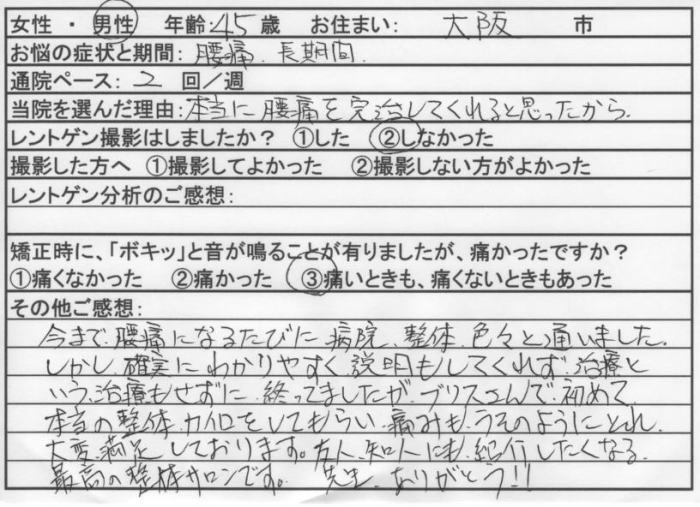 女性 ・ 男性 年齢:45歳 お住まい: 大阪 市
お悩の症状と期間: 腰痛. 長期間.
通院ペース: 2 回／週
当院を選んだ理由:本当に腰痛を完治してくれると思ったから.
レントゲン撮影はしましたか？ ①した ②しなかった
撮影した方へ ①撮影してよかった ②撮影しない方がよかった
レントゲン分析のご感想:
矯正時に、「ボキッ」と音が鳴ることが有りましたが、痛かったですか？
①痛くなかった ②痛かった ③痛いときも、痛くないときもあった
その他ご感想:
今まで、腰痛になるたびに 病院、整体、色々と通いました.
しかし、確実に わかりやすく 説明もしてくれず、治療と
いう、治療もせずに 終ってましたが、ブリスさんで、初めて
本当の整体、カイロをしてもらい、痛みも、うそのようにとれ、
大変満足しております。友人、知人にも、紹介したくなる
最高の整体サロンです。 先生、ありがとう!!